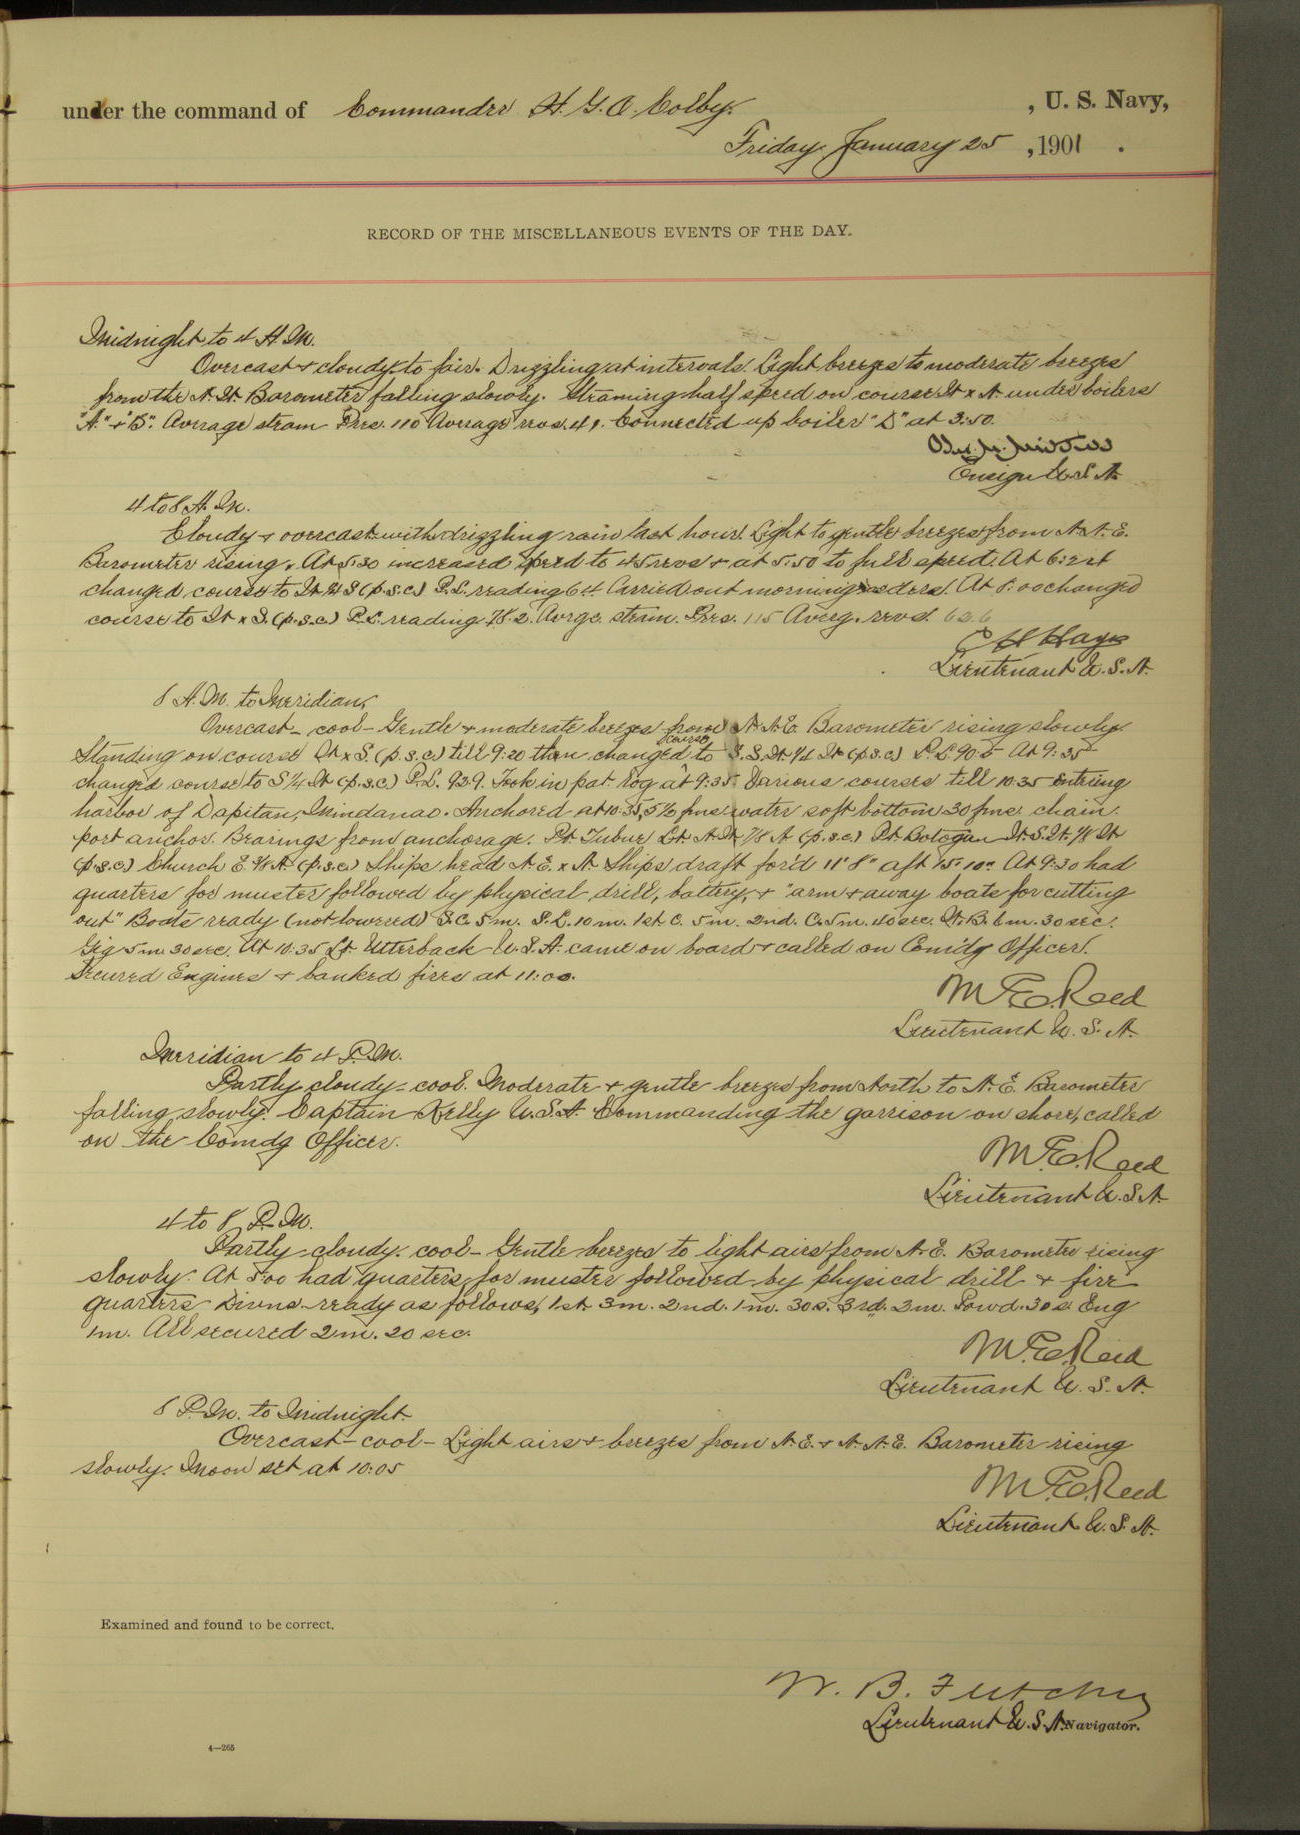 under the command of Commander H. G. O. Colby. , U. S. Navy,
Friday January 25 , 1901 .
RECORD OF THE MISCELLANEOUS EVENTS OF THE DAY.
Midnight to 4 A.M.
Overcast & cloudy to fair. Drizzling at intervals. Light breezes to moderate breezes
from the N. W. Barometer falling slowly. Steaming half speed on course W x N. under boilers
"A." & "B". Average steam Pres. 110 Average revs. 41. Connected up boiler "D" at 3:50.
Ensign U.S.N.
4 to 8 A.M.
Cloudy & overcast with drizzling rain last hour. Light to gentle breezes from N.N.E.
Barometer rising. At 5:30 increased speed to 45 revs & at 5:50 to full speed. At 6:
changed course to W ¾ S (p.s.c) P.L. reading 64 Carried out morning orders. At 8:00 changed
course to W x S. (p.s.c.) P.L. reading 78.2. Avrge. steam. Pres. 115 Averg. revs. 62.6
C H Hays
Lieutenant U.S.N.
8 A.M. to Meridian.
Overcast - cool - Gentle & moderate breezes from N.N.E. Barometer rising slowly.
Standing on course W x S. (p.s.c) till 9:20 then changed course to S.S.W. ¼ W (p.s.c) P.L. 90.5 At 9:35
changed course to S ¼ W (p.s.c) P.L. 92.9. Took in pat. log at 9:35. Various courses till 10:35 Entering
harbor of Dapitan, Mindanao. Anchored at 10:35, 5½ fms. water soft bottom 30 fms. chain
port anchor. Bearings from anchorage. Pt. Tubur Lt. N.W. ⅞ N (p.s.c) Pt. W.S.W. ⅛ W
(p.s.c) Church E. ⅜ N. (p.s.c) Ships head N.E. x N. Ships draft for'd 11' 8" aft 15' 10". At 9:30 had
quarters for muster followed by physical drill, battery, & "arm & away boats for cutting
out" Boats ready (not lowered) S.C. 5 m. S.L. 10 m. 1st C. 5 m. 2nd. C. 5 m. 40 sec. W.B. 6 m. 30 sec.
Gig 5 m. 30 sec. At 10:35 Lt. Utterback U.S.A. came on board & called on Com'dg Officer.
Secured Engines & banked fires at 11:00.
M E Reed
Lieutenant U. S. N.
Meridian to 4 P.M.
Partly cloudy - cool. Moderate & gentle breezes from North to N. E. Barometer
falling slowly. Captain Kelly U.S.A. Commanding the garrison on shore, called
on the Comdg Officer.
M. E. Reed
Lieutenant U. S. N.
4 to 8 P.M.
Partly cloudy. cool - Gentle breezes to light airs from N. E. Barometer rising
slowly. At 5:00 had quarters for muster followed by physical drill & fire
quarters - Divns ready as follows, 1st. 3 m. 2nd. 1 m. 30 s. 3rd. 2 m. Powd. 30 s. Eng
1 m. All secured 2 m. 20 sec.
M. E. Reed
Lieutenant U. S. N.
8 P.M. to Midnight.
Overcast - cool - Light airs & breezes from N. E. & N. N. E. Barometer rising
slowly. Moon set at 10:05
M. E. Reed
Lieutenant U. S. N.
Examined and found to be correct.
W. B. Fletcher
Lieutenant U. S. N. Navigator.
4—265